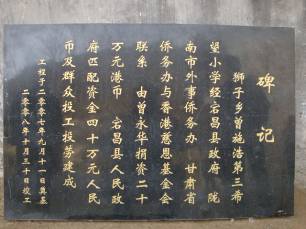 碑记
狮子乡曾施洁第三希
望小学经宕昌县政府 陇
南市外事侨务办 甘肃省
侨务办与香港慈恩基金会
联系 由曾永华捐资二十
万元港币 宕昌县人民政
府匹配资金四十万元人民
币及群众投工投劳建成
工程于二〇〇七年九月十一日奠基
二〇〇八年十月三十日竣工